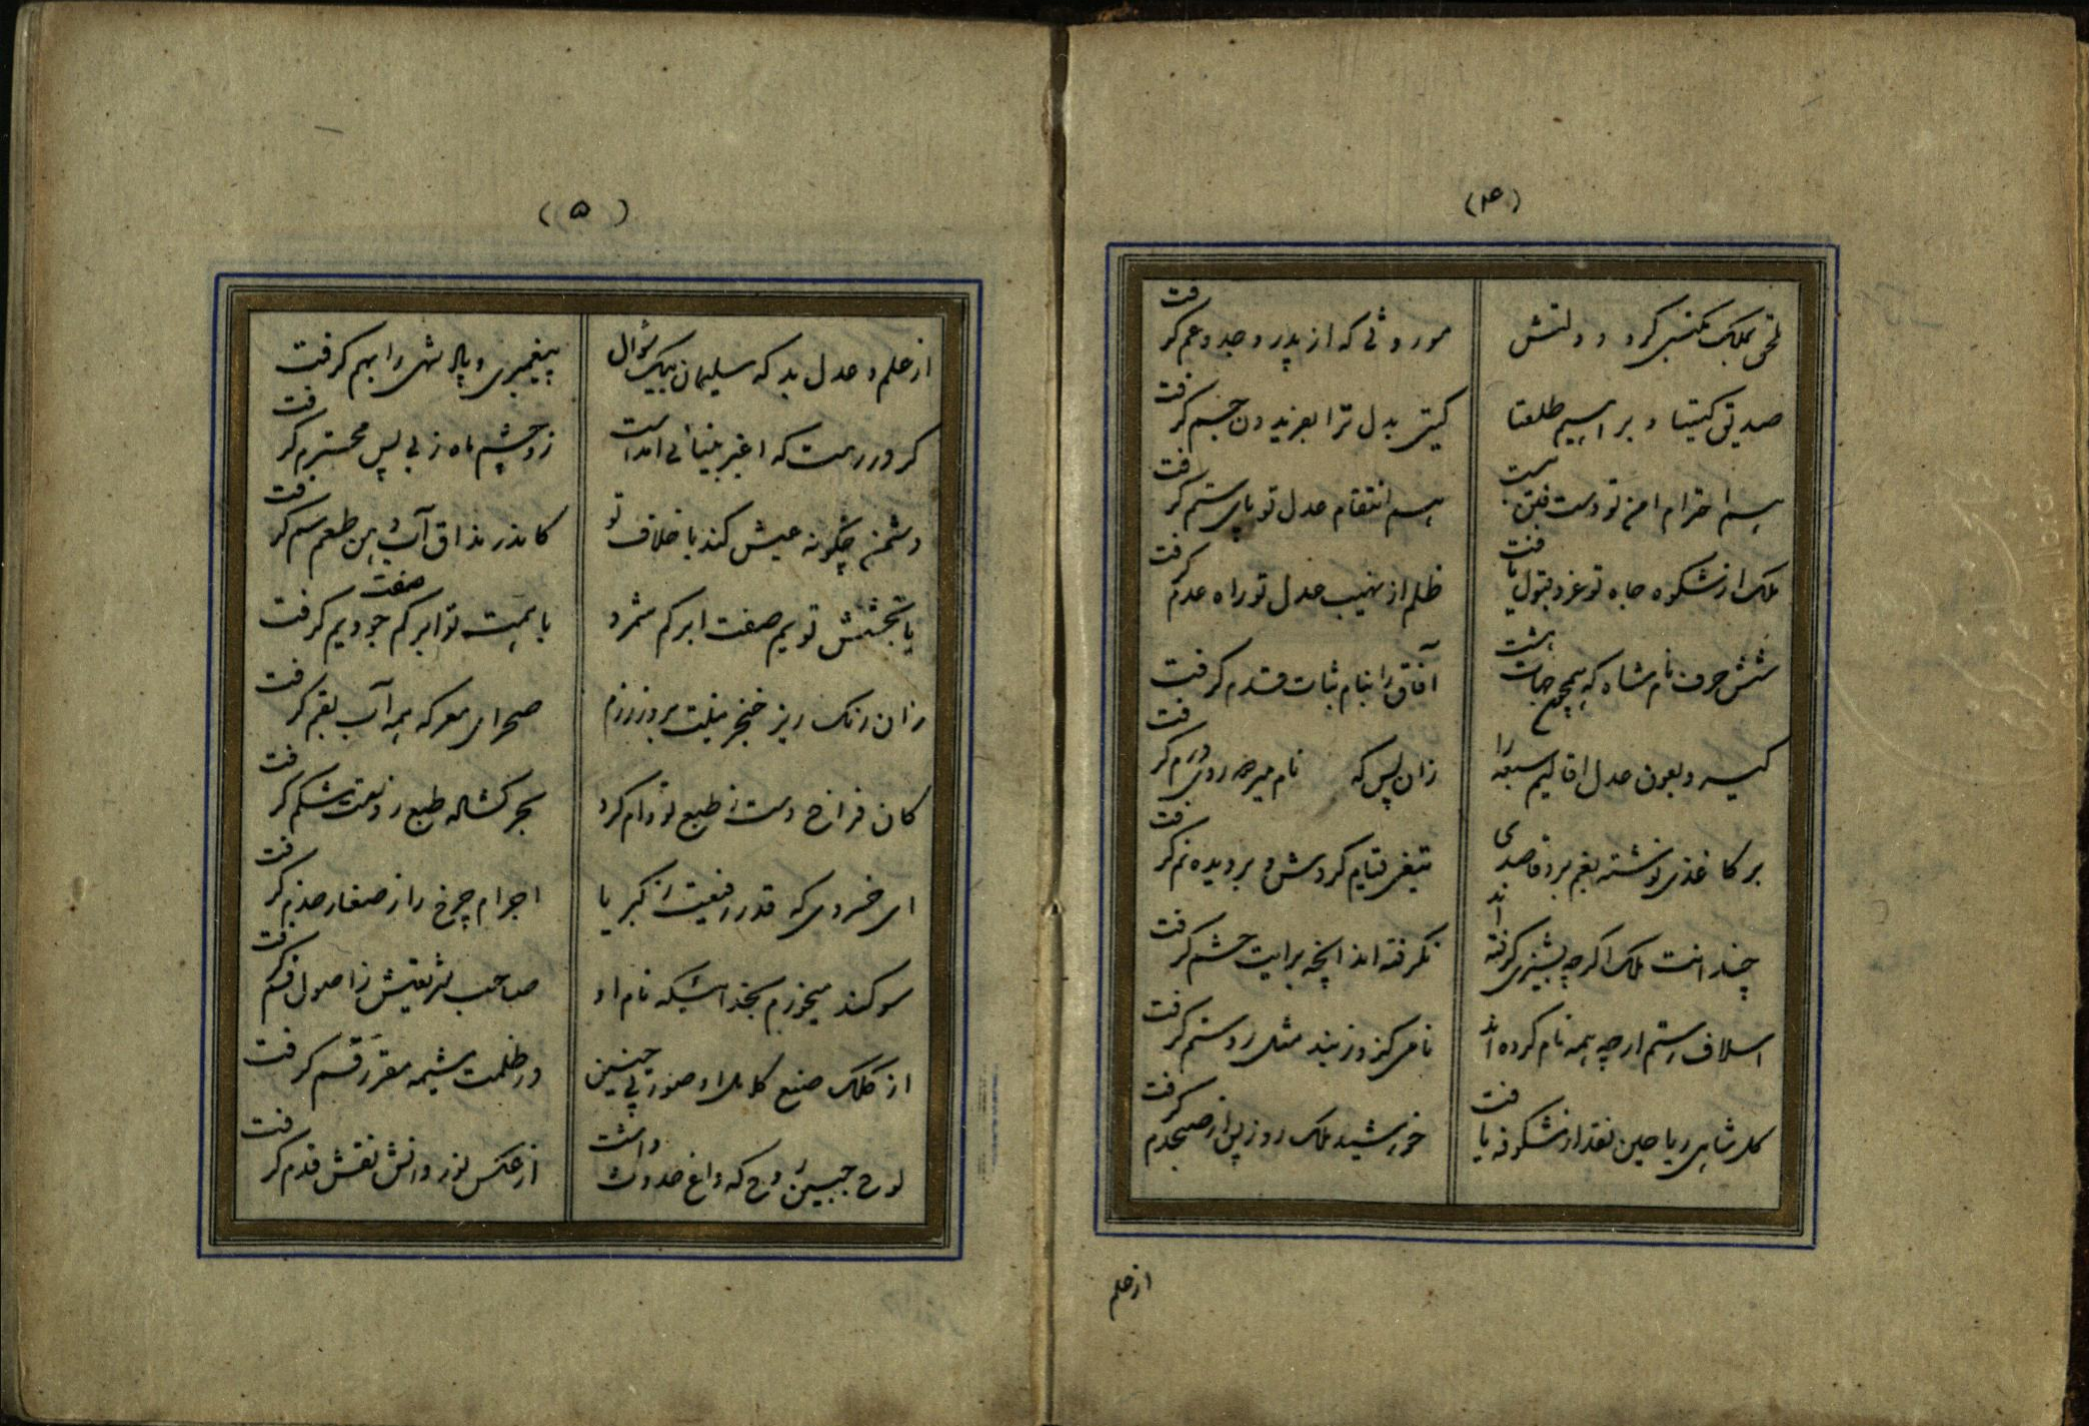 (۴)
ملحق بملک مکتسبی کرد دولتش
موروثی که از پدر و جد و عم گرفت
صدیق گیتیا و براهیم طلعتا
گیتی بدل ترا بفریدون جم گرفت
هم احترام امن تو دست فتن ببست
هم انتقام عدل تو پای ستم گرفت
ملک از شکوه جاه تو عز و قبول یافت
ظلم از نهیب عدل تو راه عدم گرفت
شش حرف نام شاه که همچو جهات هشت
آفاق را بنام ثبات قدم گرفت
گیرد بعون عدل اقالیم سبعه را
زان پس که نام میر همه روی
بر کاغذی نوشته بغم برد قاصدی
تیغی قیام کردش و بر دیده نم گرفت
چند انت ملک اگر چه بیشتری گرفته اند
نگرفته اند آنچه برایت حشم گرفت
اسلاف رستم ارچه همه نام کرده اند
نامی کز و زنند مثل روستم گرفت
گل شاهی ریاحین نقد از شکوفه یافت
خورشید ملک روز پس از صبحدم گرفت
از علم
(۵)
از علم و عدل بد که سلیمان بیک سؤال
پیغمبری و پادشهی را بهم گرفت
کرد در رهت که اغبر بینائی آمد است
زو چشم ماه زیبی پس محترم گرفت
دشمن چگونه عیش کند با خلاف تو
کاندر مذاق آب دهن طعم سم گرفت
با بخشش تو یم صفت ابر کم شمرد
با همت تو ابر کم جود یم گرفت
صفت
زان رنگ ریز خنجر نیلیت بروز رزم
صحرای معرکه همه آب بقم گرفت
کان فراخ دست ز طبع تو وام کرد
بحر گشاده طبع ز دستت شکم گرفت
ای خسروی که قدر رفیعت ز کبریا
اجرام چرخ را ز صغار خدم گرفت
سوگند میخورم بخدائیکه نام او
صاحب شریعتش ز اصول قسم گرفت
از کلک صنع کامل او صورتی چنین
در ظلمت مشیمه مقرر رقم گرفت
لوح جبین روح که داغ حدوث داشت
از عکس نور دانش نقش قدم گرفت